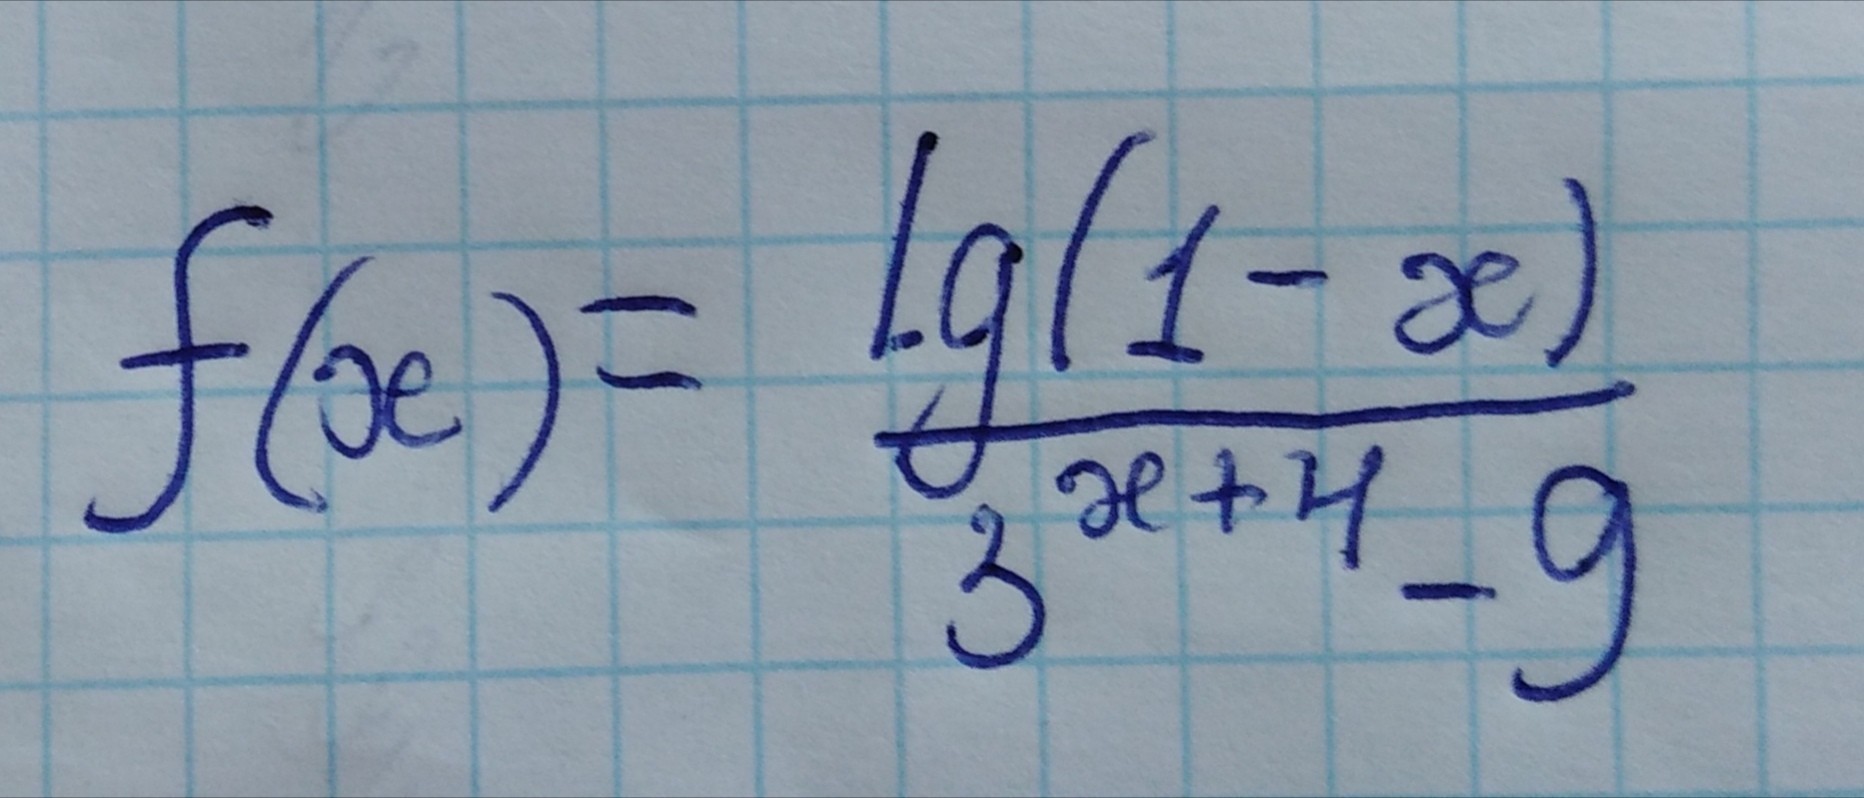 f(x) = lg(1 - x) / 3^(x+4) - 9